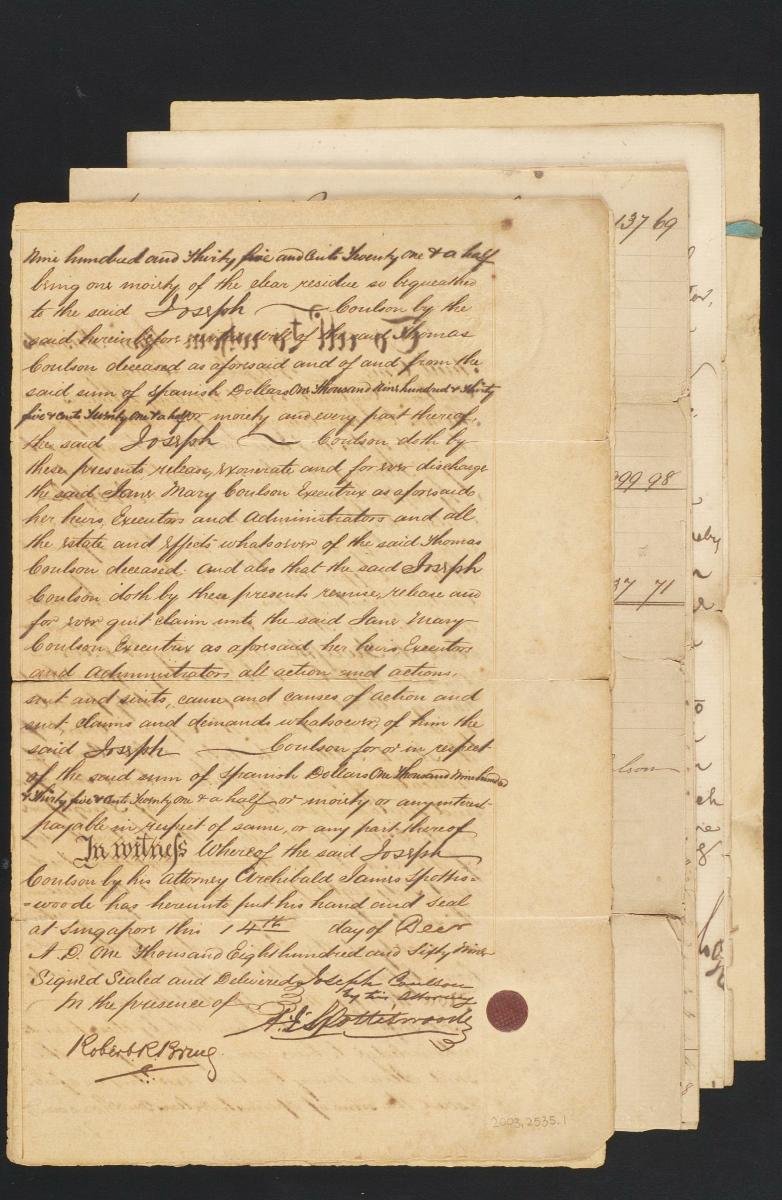 Nine hundred and Thirty five and Cents Twenty one & a half
being one moiety of the clear residue so bequeathed
to the said Joseph Coulson by the
said hereinbefore will of the said Thomas
Coulson deceased as aforesaid and of and from the
said sum of Spanish Dollars One Thousand Nine hundred & Thirty
five & Cents Twenty One & a half or moiety and every part thereof,
the said Joseph Coulson doth by
these presents, release, exonerate and for ever discharge
the said Jane Mary Coulson Executrix as aforesaid
her heirs, Executors and Administrators and all
the estate and effects whatsoever of the said Thomas
Coulson deceased. And also that the said Joseph
Coulson doth by these presents remise, release and
for ever quit claim unto the said Jane Mary
Coulson Executrix as aforesaid her heirs Executors
and Administrators all action and actions,
suit and suits, cause and causes of action and
suit, claims and demands whatsoever, of him the
said Joseph Coulson for or in respect
of the said sum of Spanish Dollars One Thousand Nine hundred
& Thirty five & Cents Twenty one & a half or moiety or any interest
payable in respect of same, or any part thereof
In witness Whereof the said Joseph
Coulson by his attorney Archibald James Spottis=
=woode has hereunto put his hand and seal
at Singapore this 14th day of Decr
A.D. One Thousand Eight hundred and Sixty Nine
Signed Sealed and Delivered Joseph Coulson
In the presence of by his Attorney
A. J. Spottiswoode
Robert R.
2003.2535.1
137 69
99 98
37 71